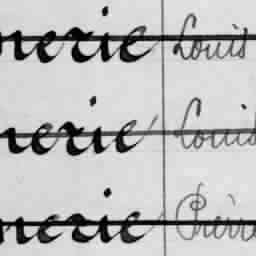 nerie Louis
nerie Louis
nerie Pierre